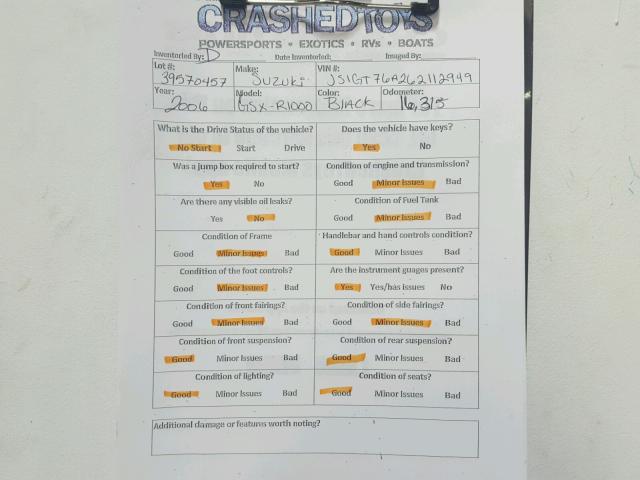 CRASHEDTOYS
POWERSPORTS • EXOTICS • RVs • BOATS
Inventoried By: D Date Inventoried: Imaged By:
Lot #: Make: VIN #:
39570457 SUZUKI JS1GT76A262112949
Year: Model: Color: Odometer:
2006 GSX-R1000 BLACK 16,315
What is the Drive Status of the vehicle? Does the vehicle have keys?
No Start Start Drive Yes No
Was a jump box required to start? Condition of engine and transmission?
Yes No Good Minor Issues Bad
Are there any visible oil leaks? Condition of Fuel Tank
Yes No Good Minor Issues Bad
Condition of Frame Handlebar and hand controls condition?
Good Minor Issues Bad Good Minor Issues Bad
Condition of the foot controls? Are the instrument guages present?
Good Minor Issues Bad Yes Yes/has issues No
Condition of front fairings? Condition of side fairings?
Good Minor Issues Bad Good Minor Issues Bad
Condition of front suspension? Condition of rear suspension?
Good Minor Issues Bad Good Minor Issues Bad
Condition of lighting? Condition of seats?
Good Minor Issues Bad Good Minor Issues Bad
Additional damage or features worth noting?